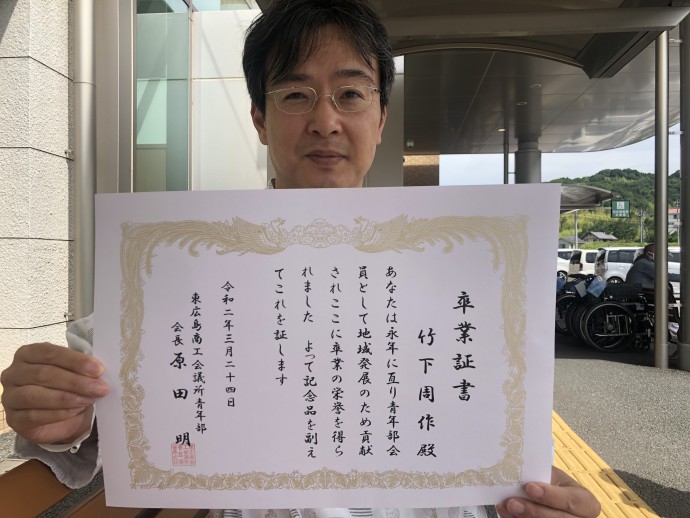 卒業証書
竹下周作殿
あなたは永年に亘り青年部会
員として地域発展のため貢献
されここに卒業の栄誉を得ら
れました よって記念品を副え
てこれを証します
令和二年三月二十四日
東広島商工会議所青年部
会長 原田 明